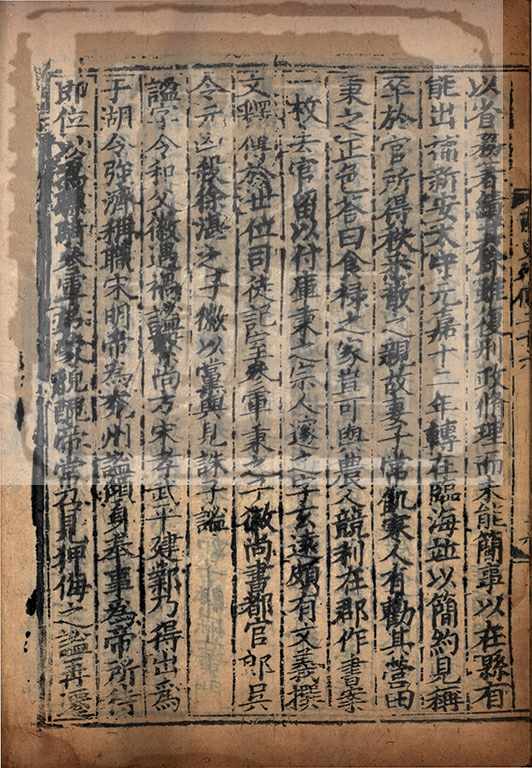 以省務著績其餘雖復刑政脩理而未能簡事以在縣有
能出補新安太守元嘉十二年轉在臨海並以簡約見稱
卒於官所得秩悉散之親故妻子常飢寒人有勸其營田
秉之正色荅曰食禄之家豈可與農人競利在郡作書案
一枚去官留以付庫秉之宗人邃之字玄遠頗有文義撰
文釋傳於世位司徒記室參軍秉之子徽尚書都官郎吳
令元凶殺徐湛之子徽以黨與見誅子謐
謐字令和父徽遇禍謐繫尚方宋孝武平建鄴乃得出為
于湖令強濟稱職宋明帝為兖州謐傾身奉事為帝所待
即位以為參軍弟蒙貌醜帝常召見狎侮之謐再遷